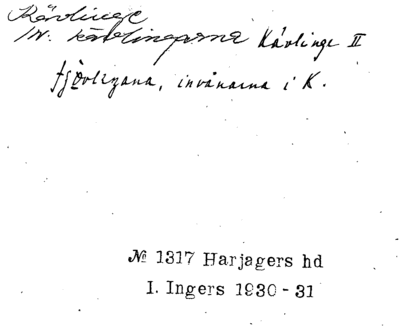 Kävlinge
IN. kävlingarna Kävlinge II
invånarna i K.
№ 1317 Harjagers hd
I. Ingers 1930-31